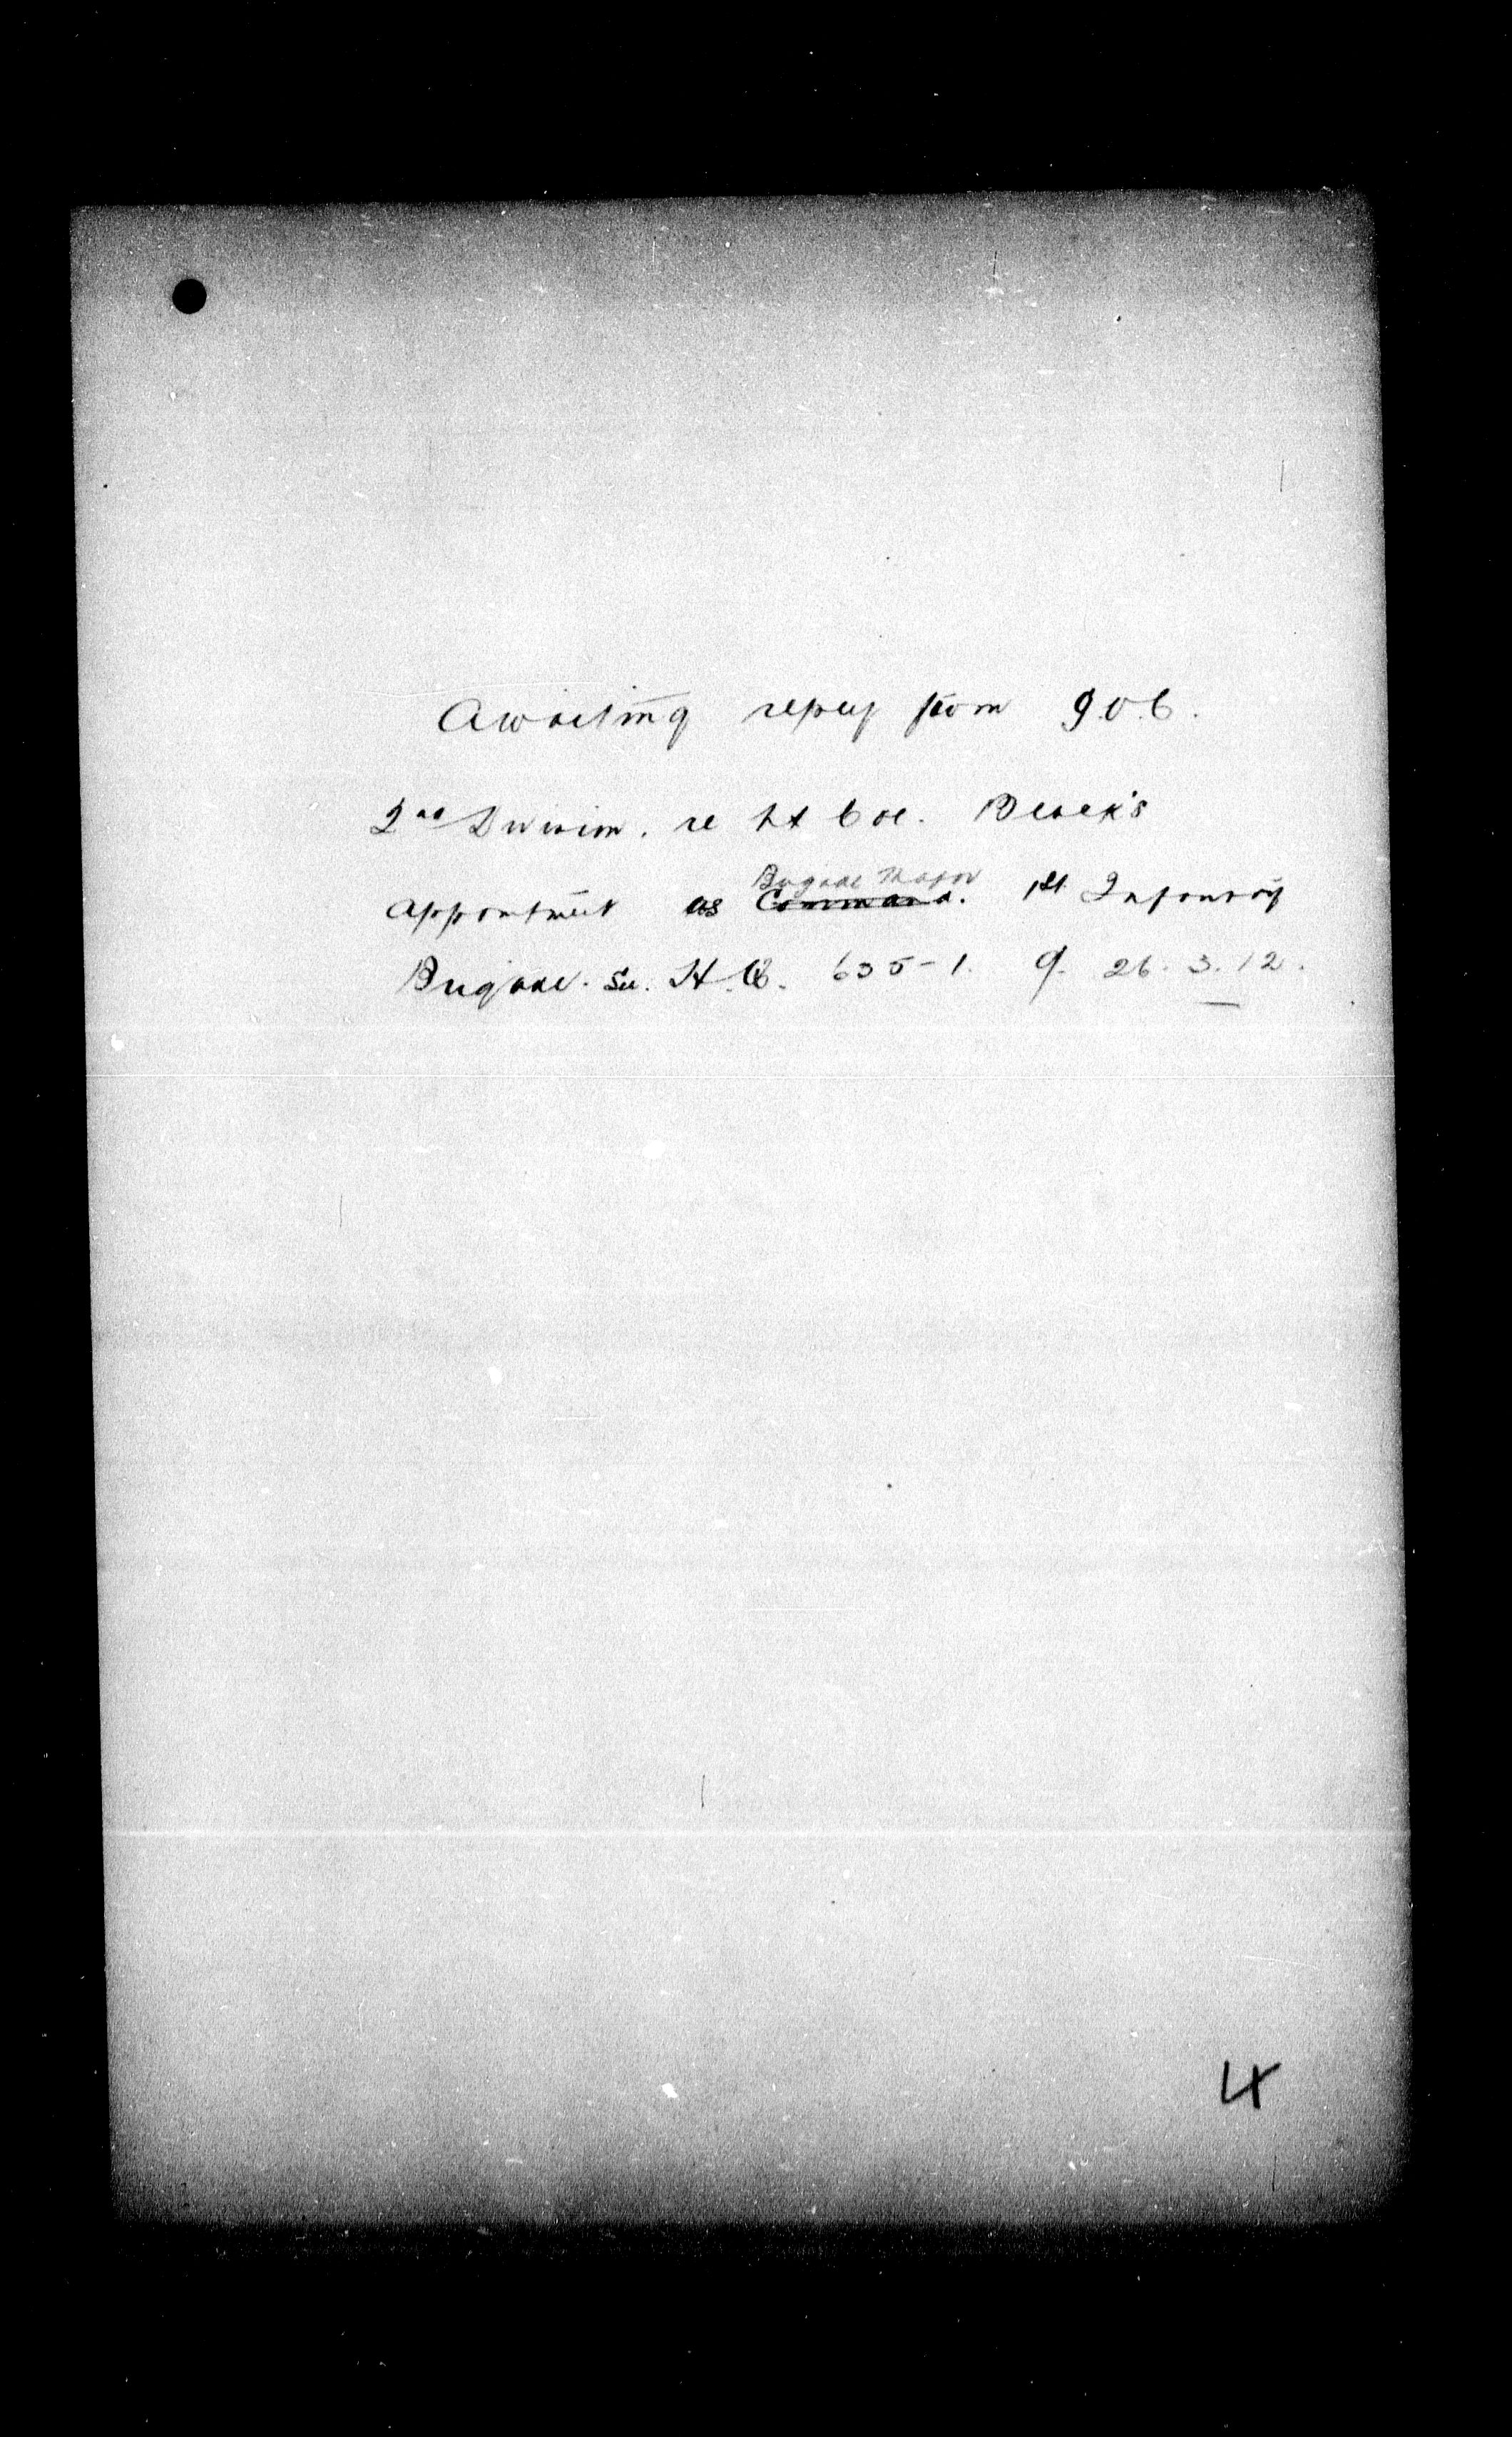 Awaiting reply from G.O.C.
2nd Division. re Lt Col. Black's
Brigade Major
appointment as Command. 1st Infantry
Brigade. See. H.Q. 635-1. 26.3.12.
4